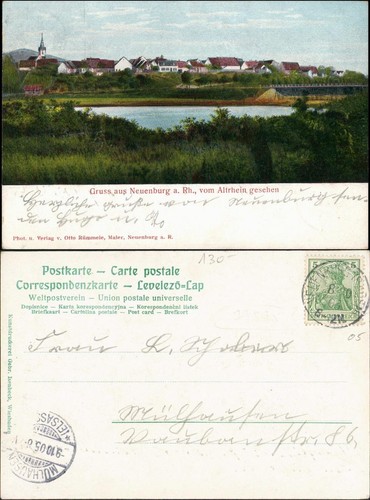 Gruss aus Neuenburg a. Rh., vom Altrhein gesehen
Herzliche grüße von Neuenburg sen-
den Hugo u.
Phot. u. Verlag v. Otto Rümmele, Maler, Neuenburg a. R.
130-
Postkarte — Carte postale
Correspondenzkarte — Levelező-Lap
Weltpostverein — Union postale universelle
Dopisnice — Karta korespondencyjna — Korespondenční lístek
Briefkaart — Cartolina postale — Post card — Brefkort
5 5
2-3N
05
Frau L.
Mülhausen
Vaubanstr. 86
Kunstdruckerei Gebr. Isenbeck, Wiesbaden
MÜLHAUSEN
9.10.05.8-9
(ELSASS)